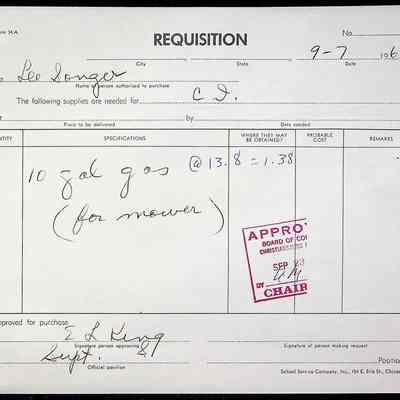 rm 14-A
REQUISITION
No.
City
State
9-7 196
Date
Leo Songer
Name of person authorized to purchase
The following supplies are needed for C I.
by
Place to be delivered
Date needed
NTITY
SPECIFICATIONS
WHERE THEY MAY BE OBTAINED?
PROBABLE COST
REMARKS
10 gal gas @ 13.8 = 1.38
(for mower)
APPRO
BOARD OF CO
SEP
BY
CHAIR
pproved for purchase
E L King
Signature person approving
Signature of person making request
Supt.
Official position
Position
School Service Company, Inc., 104 E. Erie St., Chica